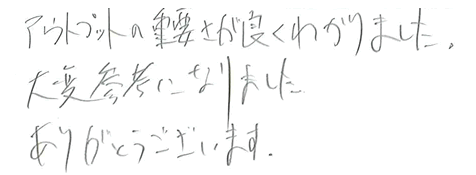 アウトプットの重要さが良くわかりました。
大変参考になりました
ありがとうございます.